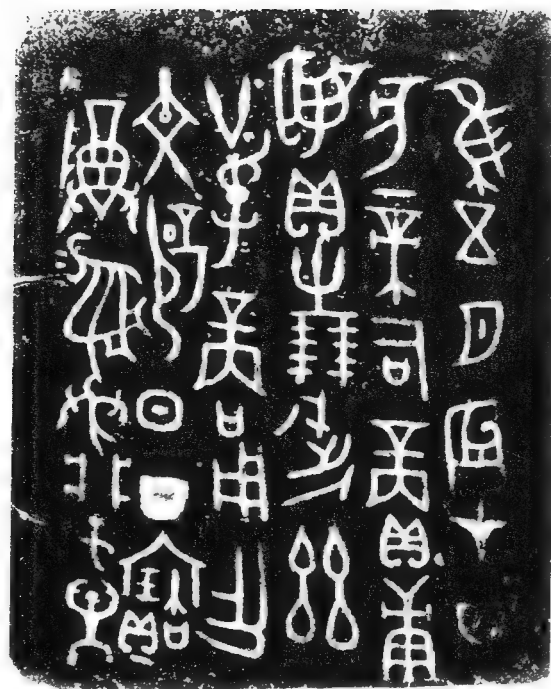 隹五月辰才丁
亥帝司賞庚
姬貝卅朋迖絲
廿寽商用乍
文辟日丁寶
尊彝